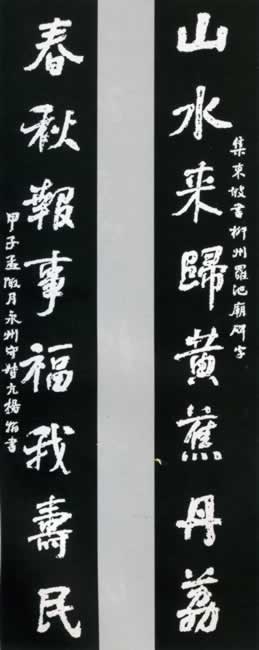 山水来歸黄蕉丹荔
集東坡書柳州羅池廟碑字
春秋報事福我壽民
甲子孟陬月永州守楊翰書